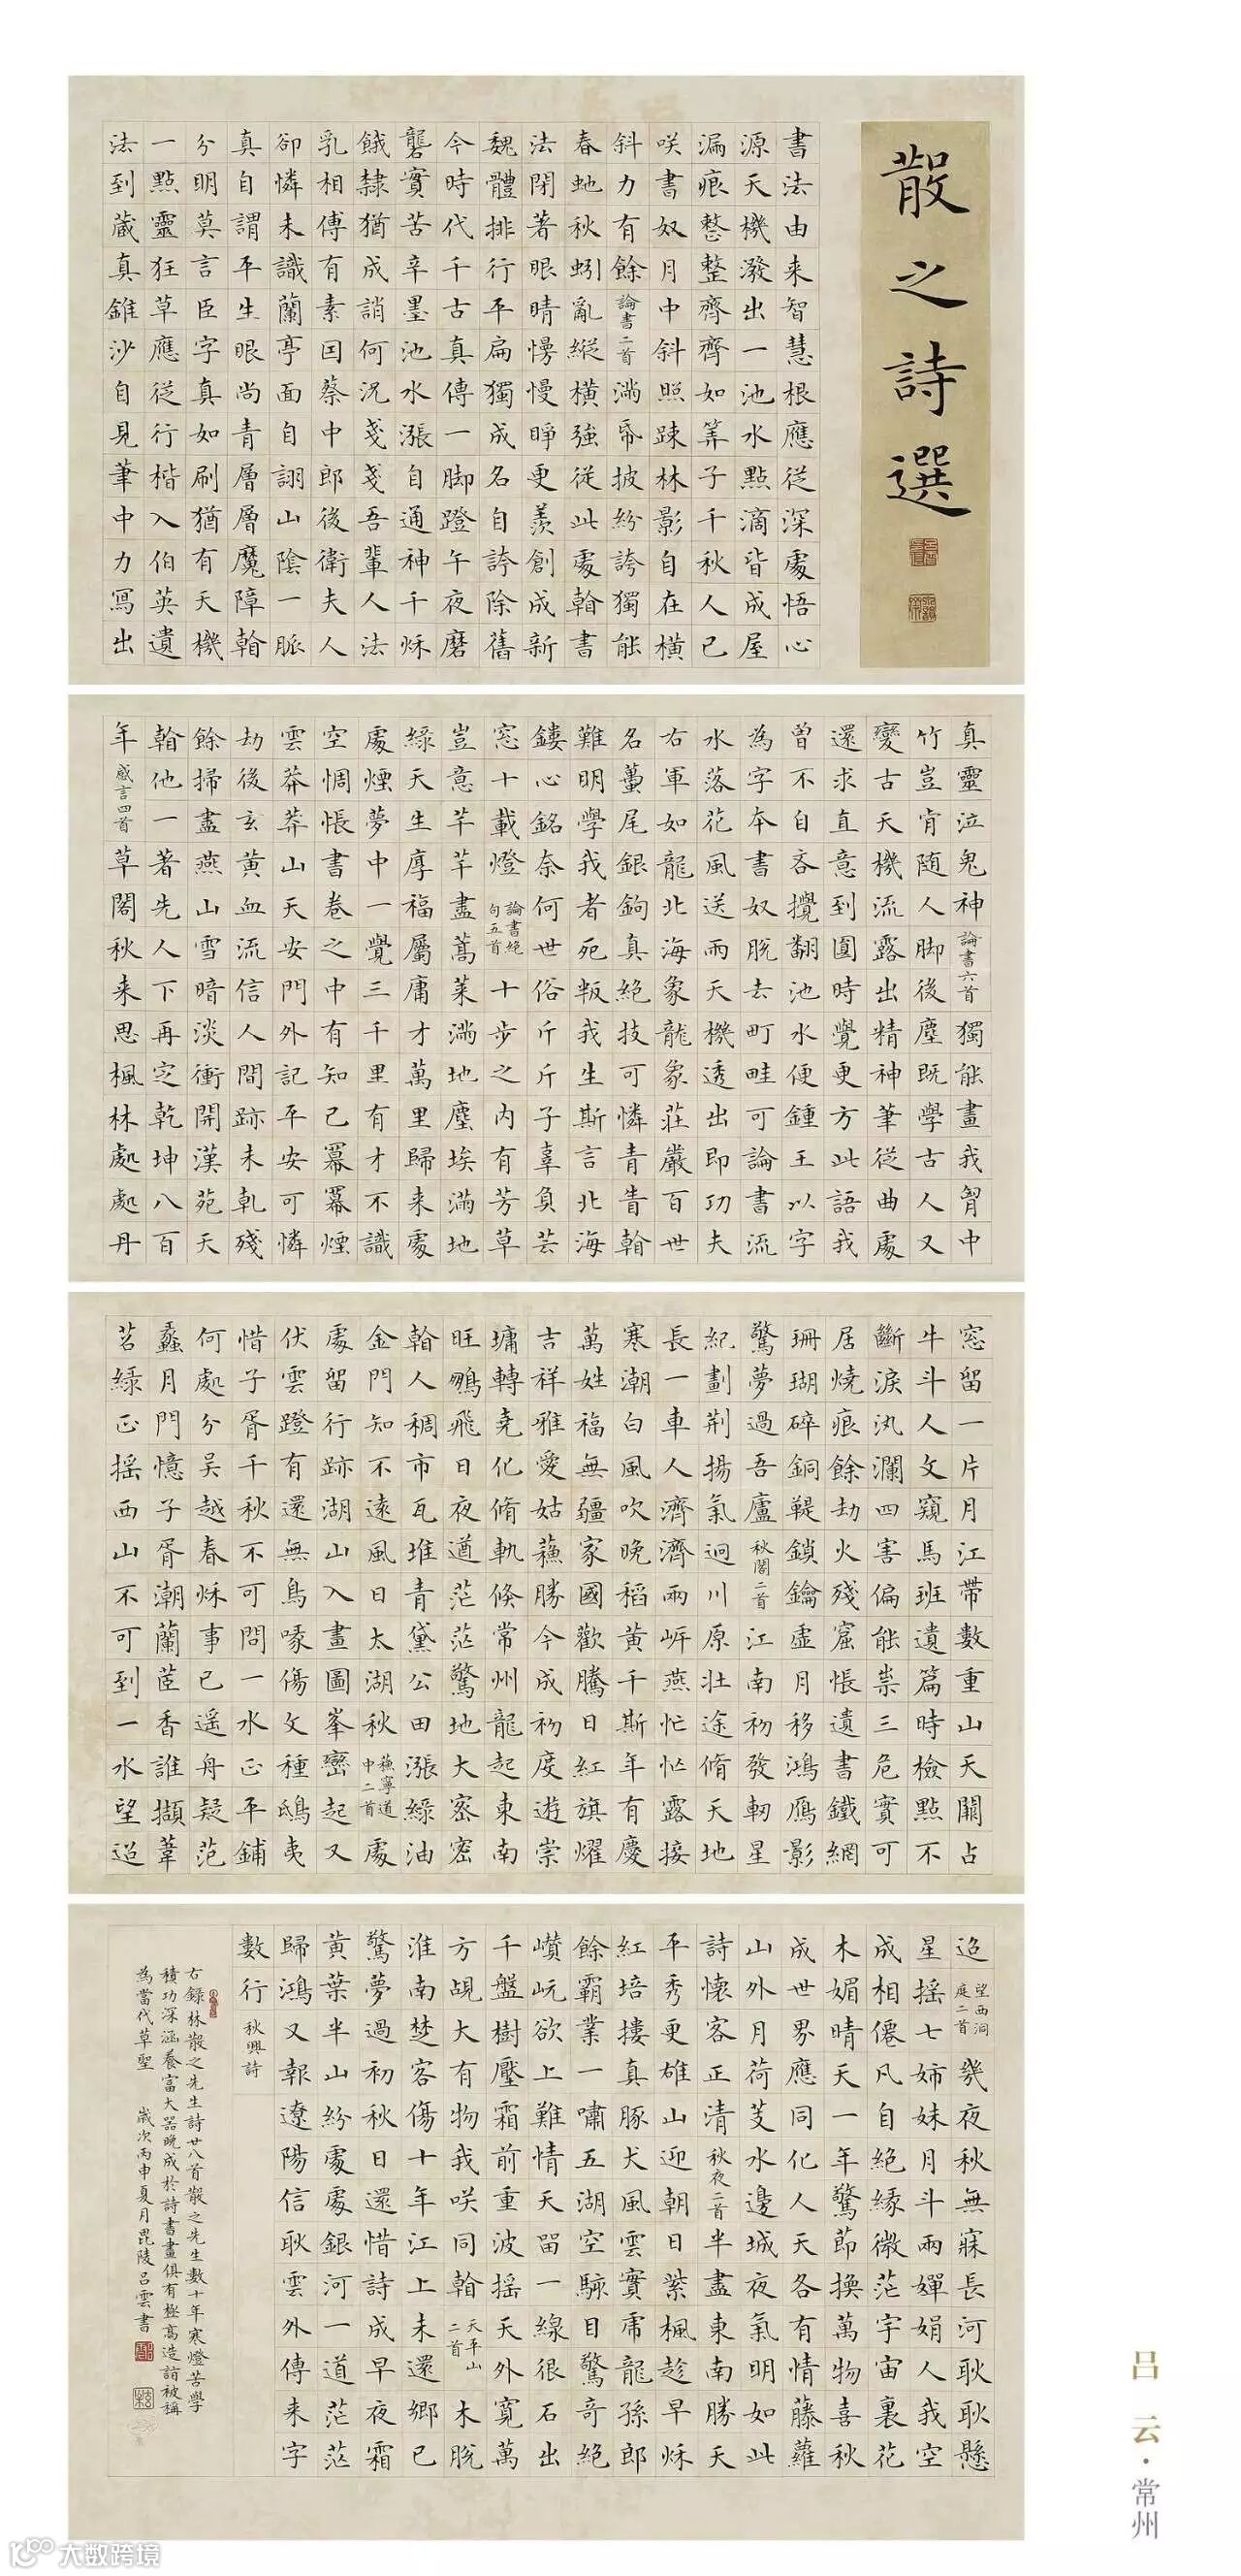 散之詩選
書法由来智慧根應從深處悟心
源天機潑出一池水點滴皆成屋
漏痕整整齊齊如筭子千秋人已
咲書奴月中斜照踈林影自在橫
斜力有餘 論書二首 滿帋披紛誇獨能
春虵秋蚓亂縱橫強從此處翰書
法閉著眼睛慢慢睁更羨創成新
魏體排行平扁獨成名自誇除舊
今時代千古真傳一脚蹬午夜磨
礱實苦辛墨池水漲自通神千秌
餓隸猶成誚何況戔戔吾輩人法
乳相傳有素因蔡中郎後衛夫人
卻憐未識蘭亭面自詡山陰一脈
真自謂平生眼尚青層層魔障翰
分明莫言臣字真如刷猶有天機
一點靈狂草應從行楷入伯英遺
法到藏真錐沙自見筆中力寫出
真靈泣鬼神 論書六首 獨能畫我胷中
竹豈肯随人脚後塵既學古人又
變古天機流露出精神筆從曲處
還求直意到圓時覺更方此語我
曾不自吝攪翻池水便鍾王以字
為字本書奴脫去町畦可論書流
水落花風送雨天機透出即功夫
右軍如龍北海象龍象莊嚴百世
名蠆尾銀鉤真絕技可憐青眚翰
難明學我者死叛我生斯言北海
鏤心銘奈何世俗斤斤子辜負芸
窓十載燈 論書絕句五首 十步之内有芳草
豈意芊芊盡蒿萊滿地塵埃滿地
綠天生厚福屬庸才萬里歸来處
處煙夢中一覺三千里有才不識
空惆悵書卷之中有知己冪冪煙
雲莽莽山天安門外記平安可憐
劫後玄黃血流信人間跡未乹殘
餘掃盡燕山雪暗淡衝開漢苑天
翰他一著先人下再定乾坤八百
年 感言四首 草閣秋来思楓林處處丹
窓留一片月江帶數重山天關占
牛斗人文窺馬班遺篇時檢點不
斷淚汍瀾四害偏能崇三危實可
居燒痕餘劫火殘窟悵遺書鐵網
珊瑚碎銅鞮鎖鑰虛月移鴻雁影
驚夢過吾廬 秋閣二首 江南初發軔星
紀劃荆揚氣迥川原壯途脩天地
長一車人濟濟兩岍燕忙忙露接
寒潮白風吹晚稻黃千斯年有慶
萬姓福無疆家國歡騰日紅旗耀
吉祥雅愛姑蘓勝今成初度遊崇
墉轉堯化脩軌倏常州龍起東南
旺鵰飛日夜遒茫茫驚地大密密
翰人稠市瓦堆青黛公田漲綠油
金門知不遠風日太湖秋 蘓寧道中二首 處
處留行跡湖山入畫圖峯巒起又
伏雲蹬有還無鳥喙傷文種鴟夷
惜子胥千秋不可問一水正平鋪
何處分吴越春秌事已遥舟疑范
蠡月門憶子胥潮蘭茝香誰擷葦
苕綠正摇西山不可到一水望迢
迢 望西洞庭二首 幾夜秋無寐長河耿耿懸
星摇七姊妹月斗兩嬋娟人我空
成相僊凡自絕緣微茫宇宙裏花
木媚晴天一年驚節換萬物喜秋
成世界應同化人天各有情藤蘿
山外月荷芰水邊城夜氣明如此
詩懷客正清 秋夜二首 半盡東南勝天
平秀更雄山迎朝日紫楓趁早秌
紅培摟真豚犬風雲實龍孫郎
餘霸業一嘯五湖空騁目驚奇絕
巑岏欲上難情天留一線很石出
千盤樹壓霜前重波摇天外寛萬
方覘大有物我咲同翰 天平山二首 木脫
淮南楚客傷十年江上未還鄉已
驚夢過初秋日還惜詩成早夜霜
黃葉半山紛處處銀河一道茫茫
歸鴻又報遼陽信耿雲外傳来字
數行 秋興詩
右錄林散之先生詩廿八首散之先生數十年寒燈苦學
積功深涵養富大器晚成於詩書畫俱有極高造詣被稱
為當代草聖 歲次丙申夏月毘陵呂雲書
吕云·常州
大数跨境